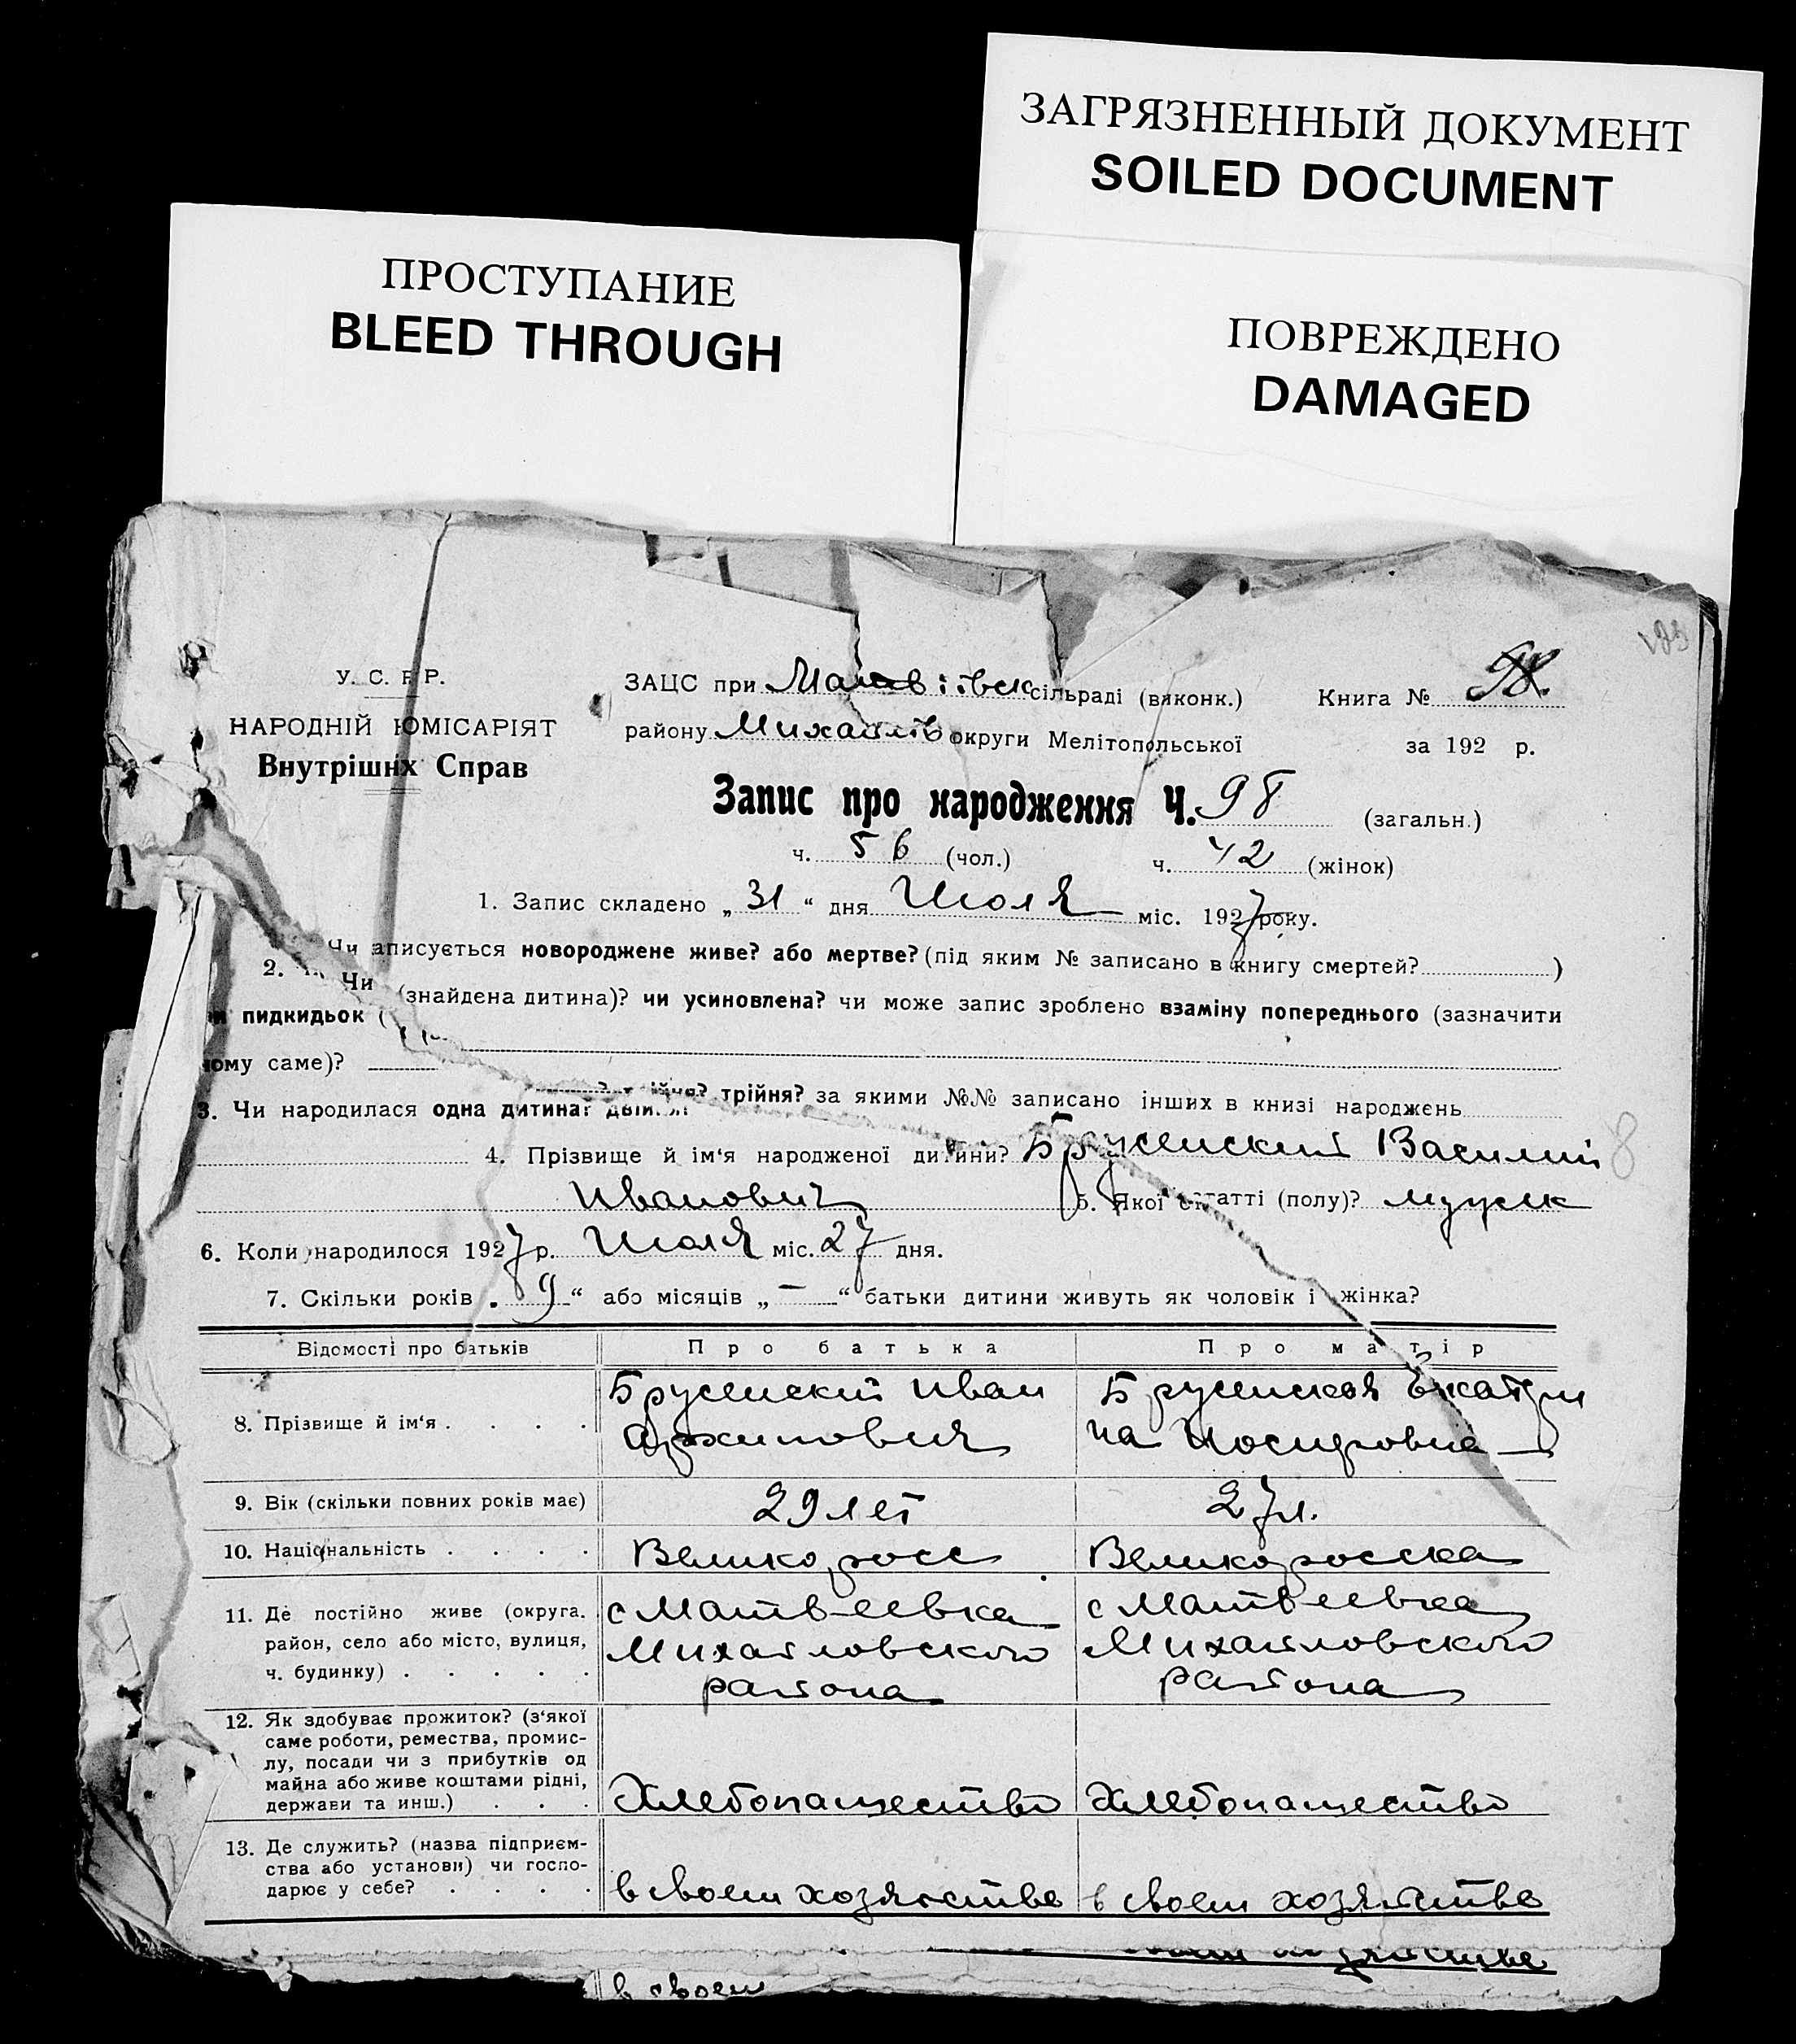 ЗАГРЯЗНЕННЫЙ ДОКУМЕНТ
SOILED DOCUMENT
ПРОСТУПАНИЕ
BLEED THROUGH
ПОВРЕЖДЕНО
DAMAGED
У. С. Р Р.
НАРОДНІЙ ЮМІСАРІЯТ
Внутрішнх Справ
ЗАЦС при Матвіївск сільраді (виконк.)
Книга №
району Михайлів округи Мелітопольської
за 192 р.
Запис про народження Ч. 98 (загальн.)
ч. 56 (чол.) ч. 42 (жінок)
1. Запис складено „31“ дня Июля міс. 1927 року.
2. Чи аписується новороджене живе? або мертве? (під яким № записано в книгу смертей? )
Чи
пидкидьок (знайдена дитина)? чи усиновлена? чи може запис зроблено взаміну попереднього (зазначити
чому саме)?
3. Чи народилася одна дитина? двійня? трійня? за якими №№ записано інших в книзі народжень
4. Прізвище й ім‘я народженої дитини? Брусенский Василий 8
Иванович 5. Якої статті (полу)? мужск
6. Коли народилося 1927 р. Июля міс. 27 дня.
7. Скільки років „9“ або місяців „—“ батьки дитини живуть як чоловік і жінка?
Відомості про батьків Про батька Про матір
8. Прізвище й ім‘я . . . .
Брусенский Иван
Архипович
Брусенская Екатери
на Иосифовна
9. Вік (скільки повних років має) 29 лет 27 л.
10. Національність . . . . Великоросс Великоросска
11. Де постійно живе (округа,
район, село або місто, вулиця,
ч. будинку) . . . . .
с Матвеевка
Михайловского
района
с Матвеевка
Михайловского
района
12. Як здобуває прожиток? (з‘якої
саме роботи, ремества, промис-
лу, посади чи з прибутків од
майна або живе коштами рідні,
держави та инш.) . . .
Хлебопашество Хлебопашество
13. Де служить? (назва підприєм-
ства або установи) чи госпо-
дарює у себе? . . . .
в своем хозяйстве в своем хозяйстве
хозяйстве
в своем